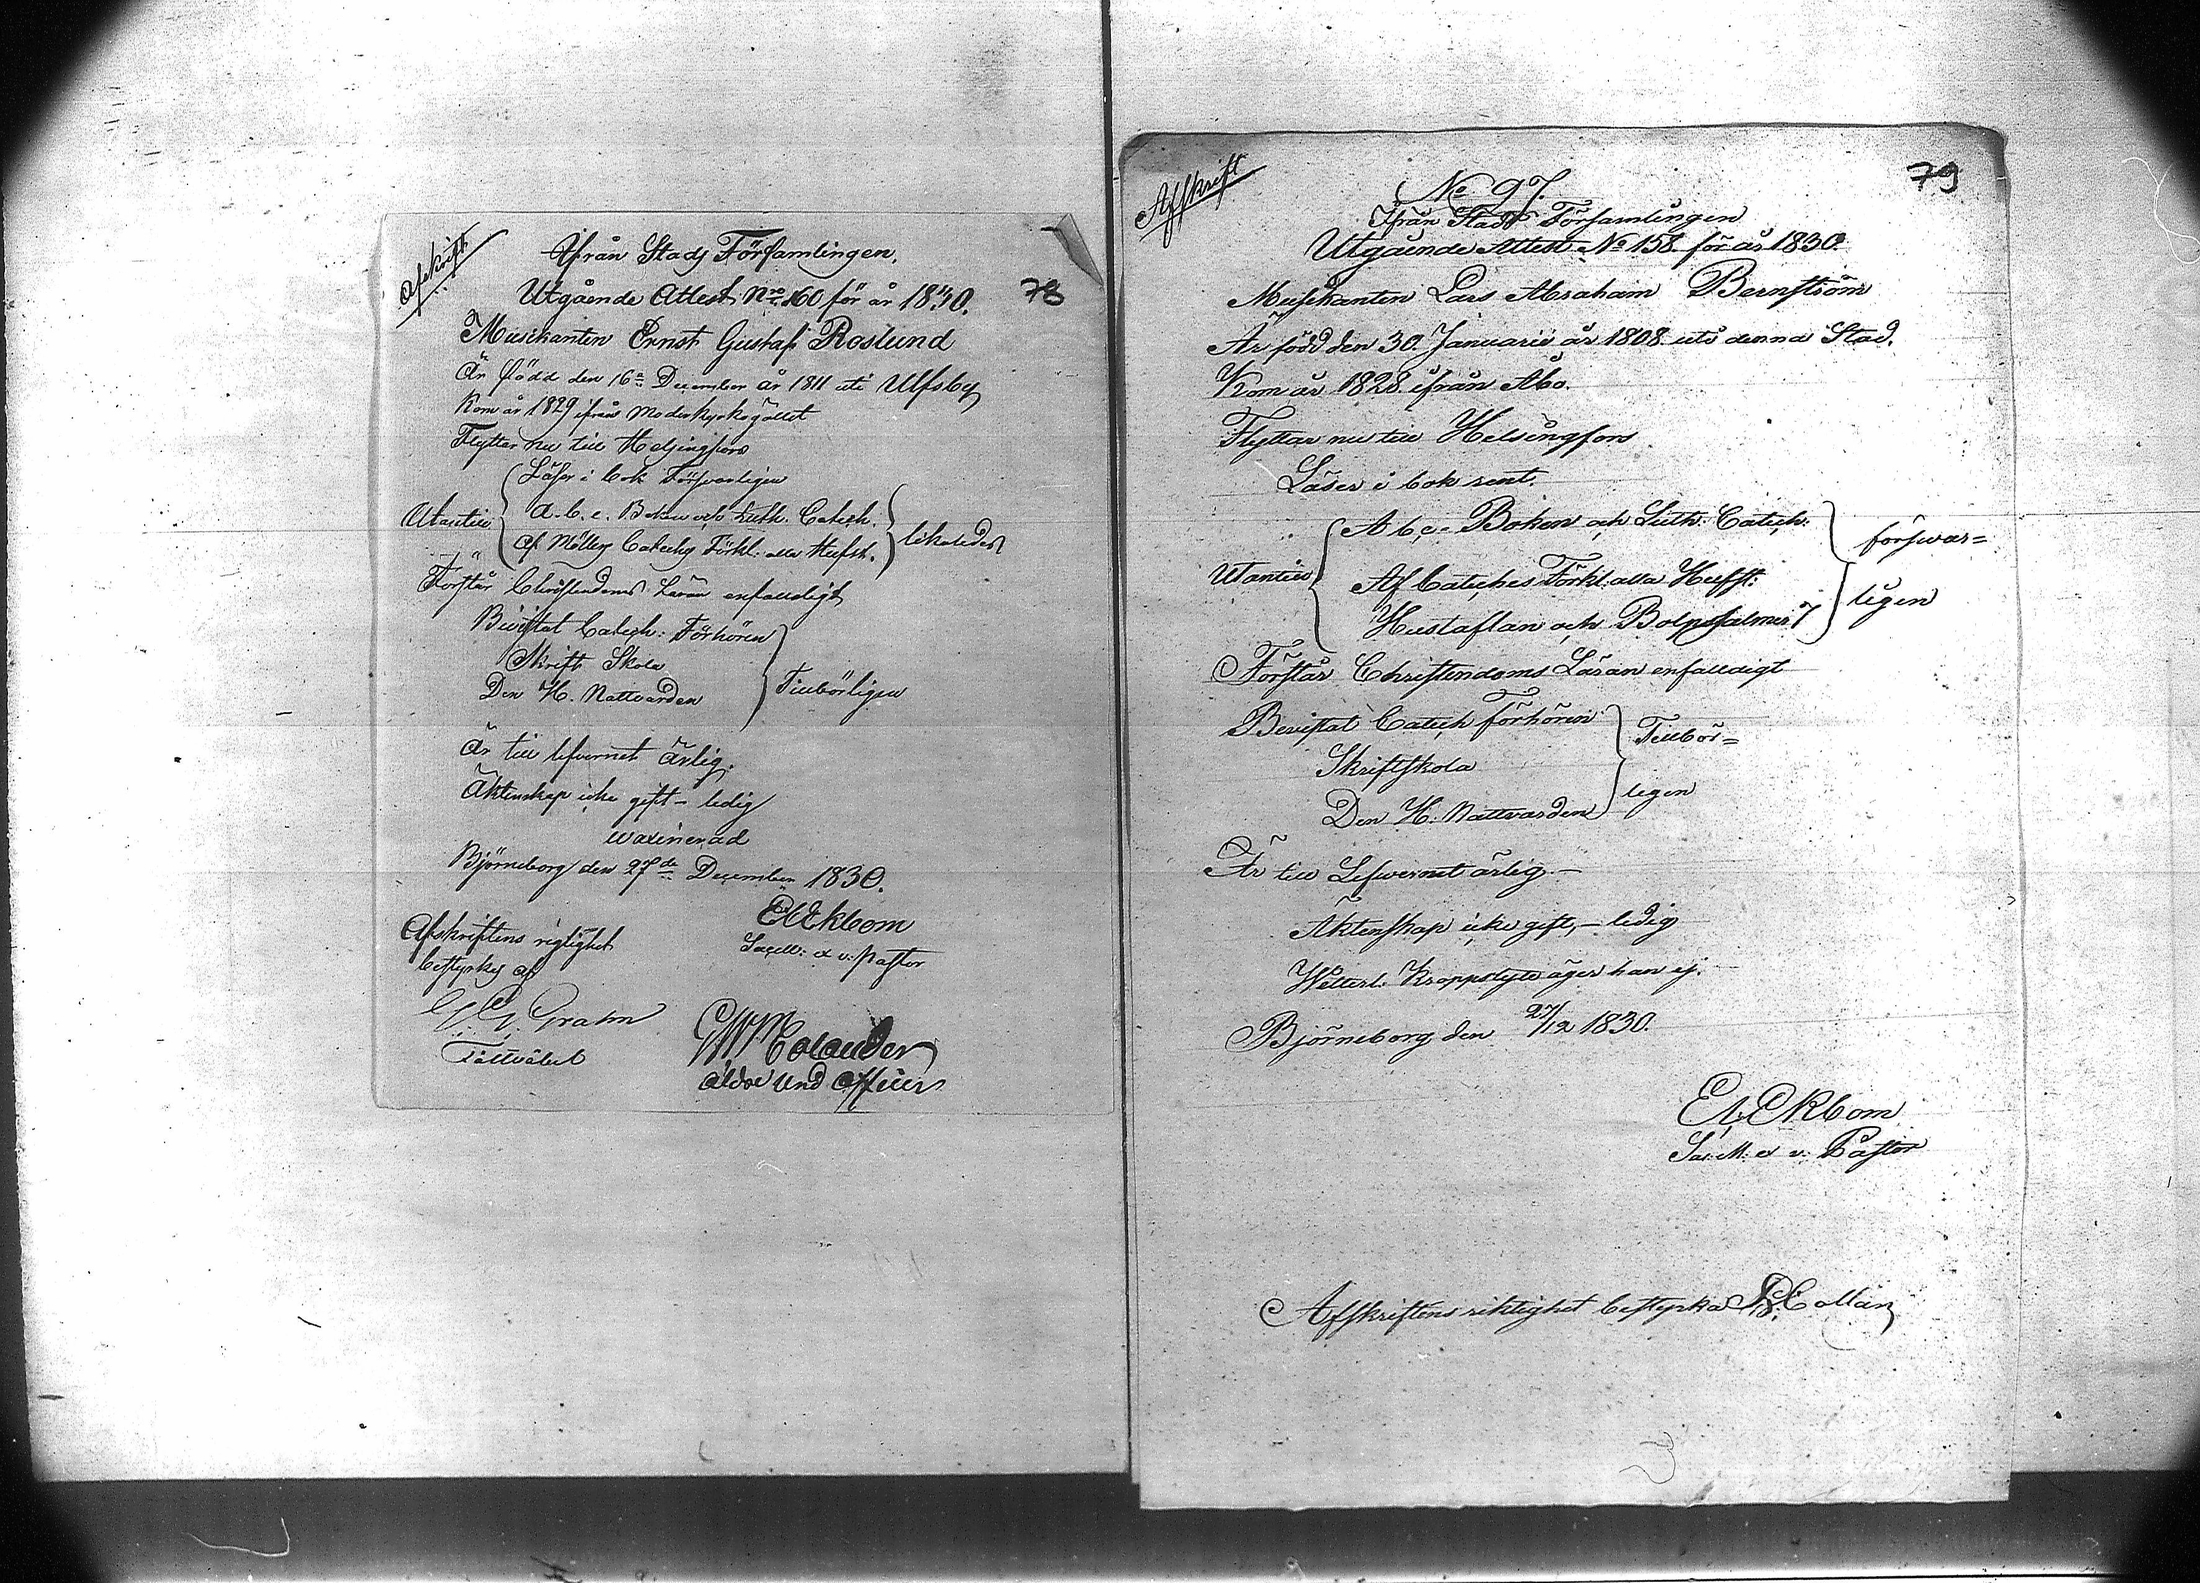 Afskrift
78
Ifrån Stads Församlingen,
Utgående Attest Nro 160 för år 1830.
Musikanten Ernst Gustaf Roslund
Är född den 16de December år 1811 uti Ulfsby
Kom år 1829 ifrån Moderkyrkogället
Flyttar nu till Helsingfors
Läser i bok Försvarligen
Utantill A.b.c. Boken och Luth. Catech. likaledes
af Möllers Catechs Förkl. alla Hufst.
Förstår Christendoms Läran enfaldigt
Bevistat Catech: Förhören
Skrift Skola
Den H. Nattvarden Tillbörligen
Är till lefvernet ärlig.
Äktenskap icke gift – ledig
waxinerad
Björneborg den 27de December 1830.
Afskriftens rigtighet
bestyrkes af
G. G. Grahn
Fältväbel
Ekbom
Sacell: o v: Pastor
Colander
äldre Und officer
Afskrift
79
No 97.
Ifrån Stads Församlingen
Utgående Attest No 158 för år 1830.
Musikanten Lars Abraham Bernström
Är född den 30 Januarii år 1808 uti denna Stad.
Kom år 1828 ifrån Åbo.
Flyttar nu till Helsingfors
Läser i bok rent.
A b c Boken och Luth: Catech: försvar=
Utantill Af Cateches Förkl. alla Hufst: ligen
Hustaflan och Botpsalmer 7
Förstår Christendoms Läran enfaldigt
Bevistat Catech förhören Tillbör=
Skriftskola
Den H. Nattvarden ligen
Är till Lefwernet ärlig. –
Äktenskap icke gift, – ledig
Witterl. Kroppslyte äger han ej.
Björneborg den 27/12 1830.
Ekbom
Sacell: o v: Pastor
Afskriftens riktighet bestyrka Collan